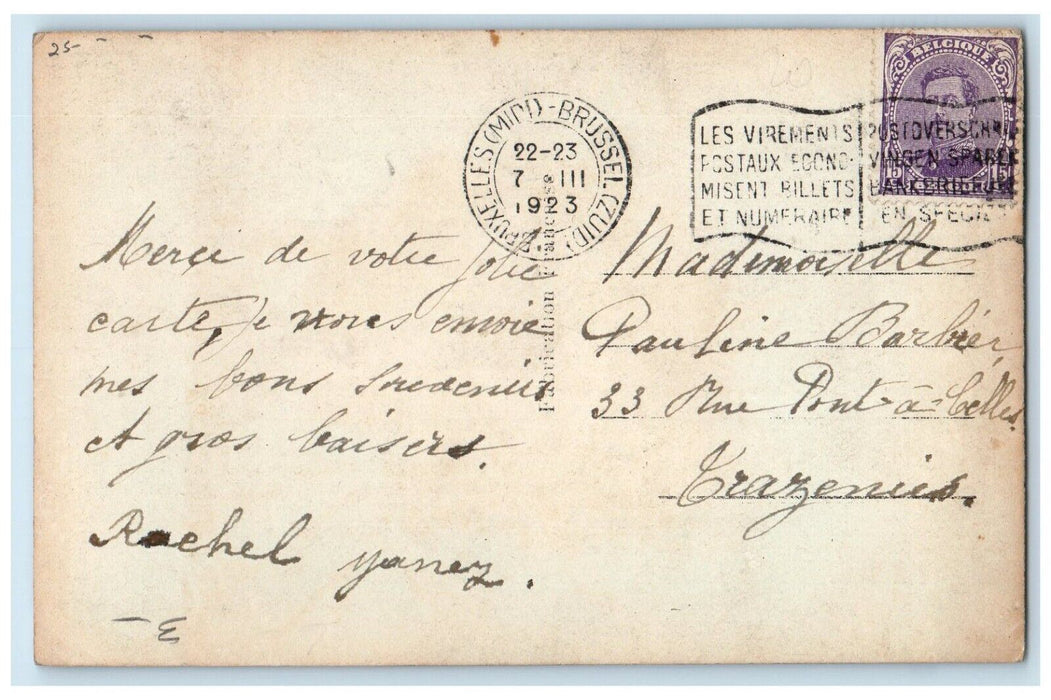 25-
BRUXELLES (MIDI) - BRUSSEL (ZUID)
22-23
7 III
1923
LES VIREMENTS
POSTAUX ECONO-
MISENT BILLETS
ET NUMERAIRE
POSTOVERSCHRIJ
VINGEN SPAREN
EN SPECIE
BELGIQUE
15 15
Fabrication Française
Merci de votre jolie
carte, je vous envoie
mes bons souvenirs
et gros baisers.
Rachel Yanez.
Mademoiselle
Pauline Barbier
33 Rue Pont-à-Celles.
Trazenies.